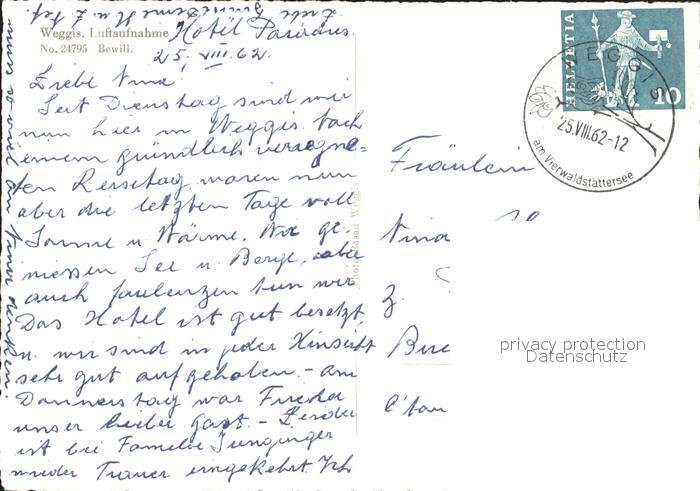 Weggis. Luftaufnahme
No. 24795 Bewill.
Hotel Paradies
25. VIII. 62.
Liebe Nina!
Seit Dienstag sind wir
nun hier in Weggis. Nach
einem gründlich verregne-
ten Reisetag, waren nun
aber die letzten Tage voll
Sonne u Wärme. Wir ge-
niessen See u. Berge, aber
auch faulenzen tun wir
Das Hotel ist gut besetzt
u. wir sind in jeder Hinsicht
sehr gut aufgehoben. - Am
Donnerstag war Frieda
unser lieber Gast. - Leider
ist bei Familie Junginger
wieder Trauer eingekehrt Ich
muss so viel an
denken
Liebe
Photo Weggis
HELVETIA
10
WEGGIS
25.VIII.62-12
am Vierwaldstättersee
Fräulein
Nina
z.
privacy protection
Datenschutz